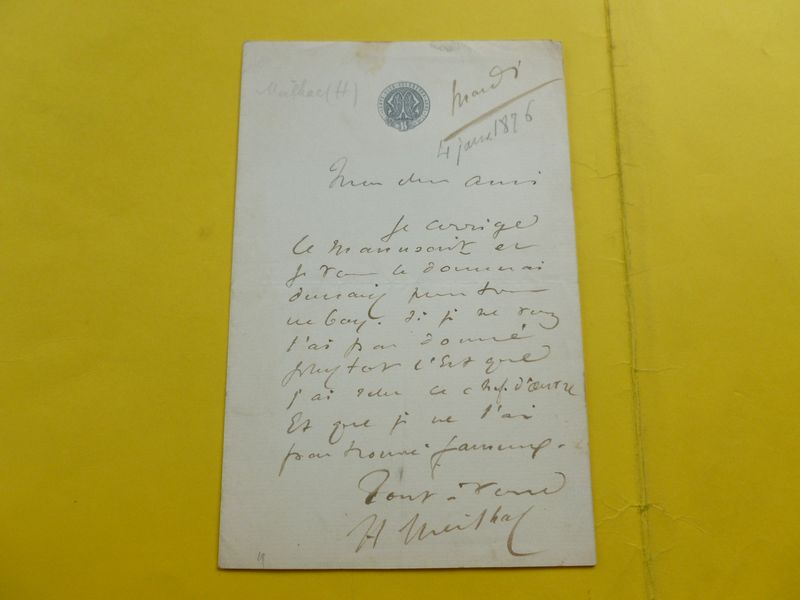 Meilhac (H)
Mardi
4 janv. 1876
Mon cher ami
Je corrige
le manuscrit et
je vous le donnerai
demain pour
si je ne vous
l'ai pas donné
plus tot c'est que
j'ai relu ce chef d'œuvre
Et que je ne l'ai
pas trouvé fameux.
Tout à vous
H Meilhac